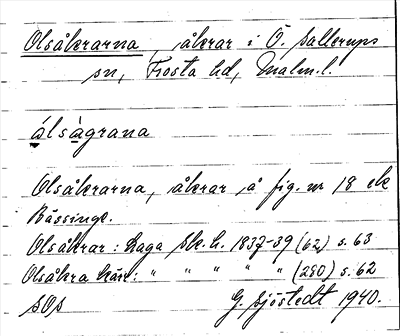 Olsåkrarna, åkrar i Ö. Sallerups
sn, Frosta hd, Malm.l.
álsågrana
Olsåkrarna, åkrar å fig. nr 18
Bässinge.
Olsåkrar: Laga sk.h. 1837-39 (62) s. 63
Olsåkra : " " " " " (280) s. 62
G. Sjöstedt 1940.